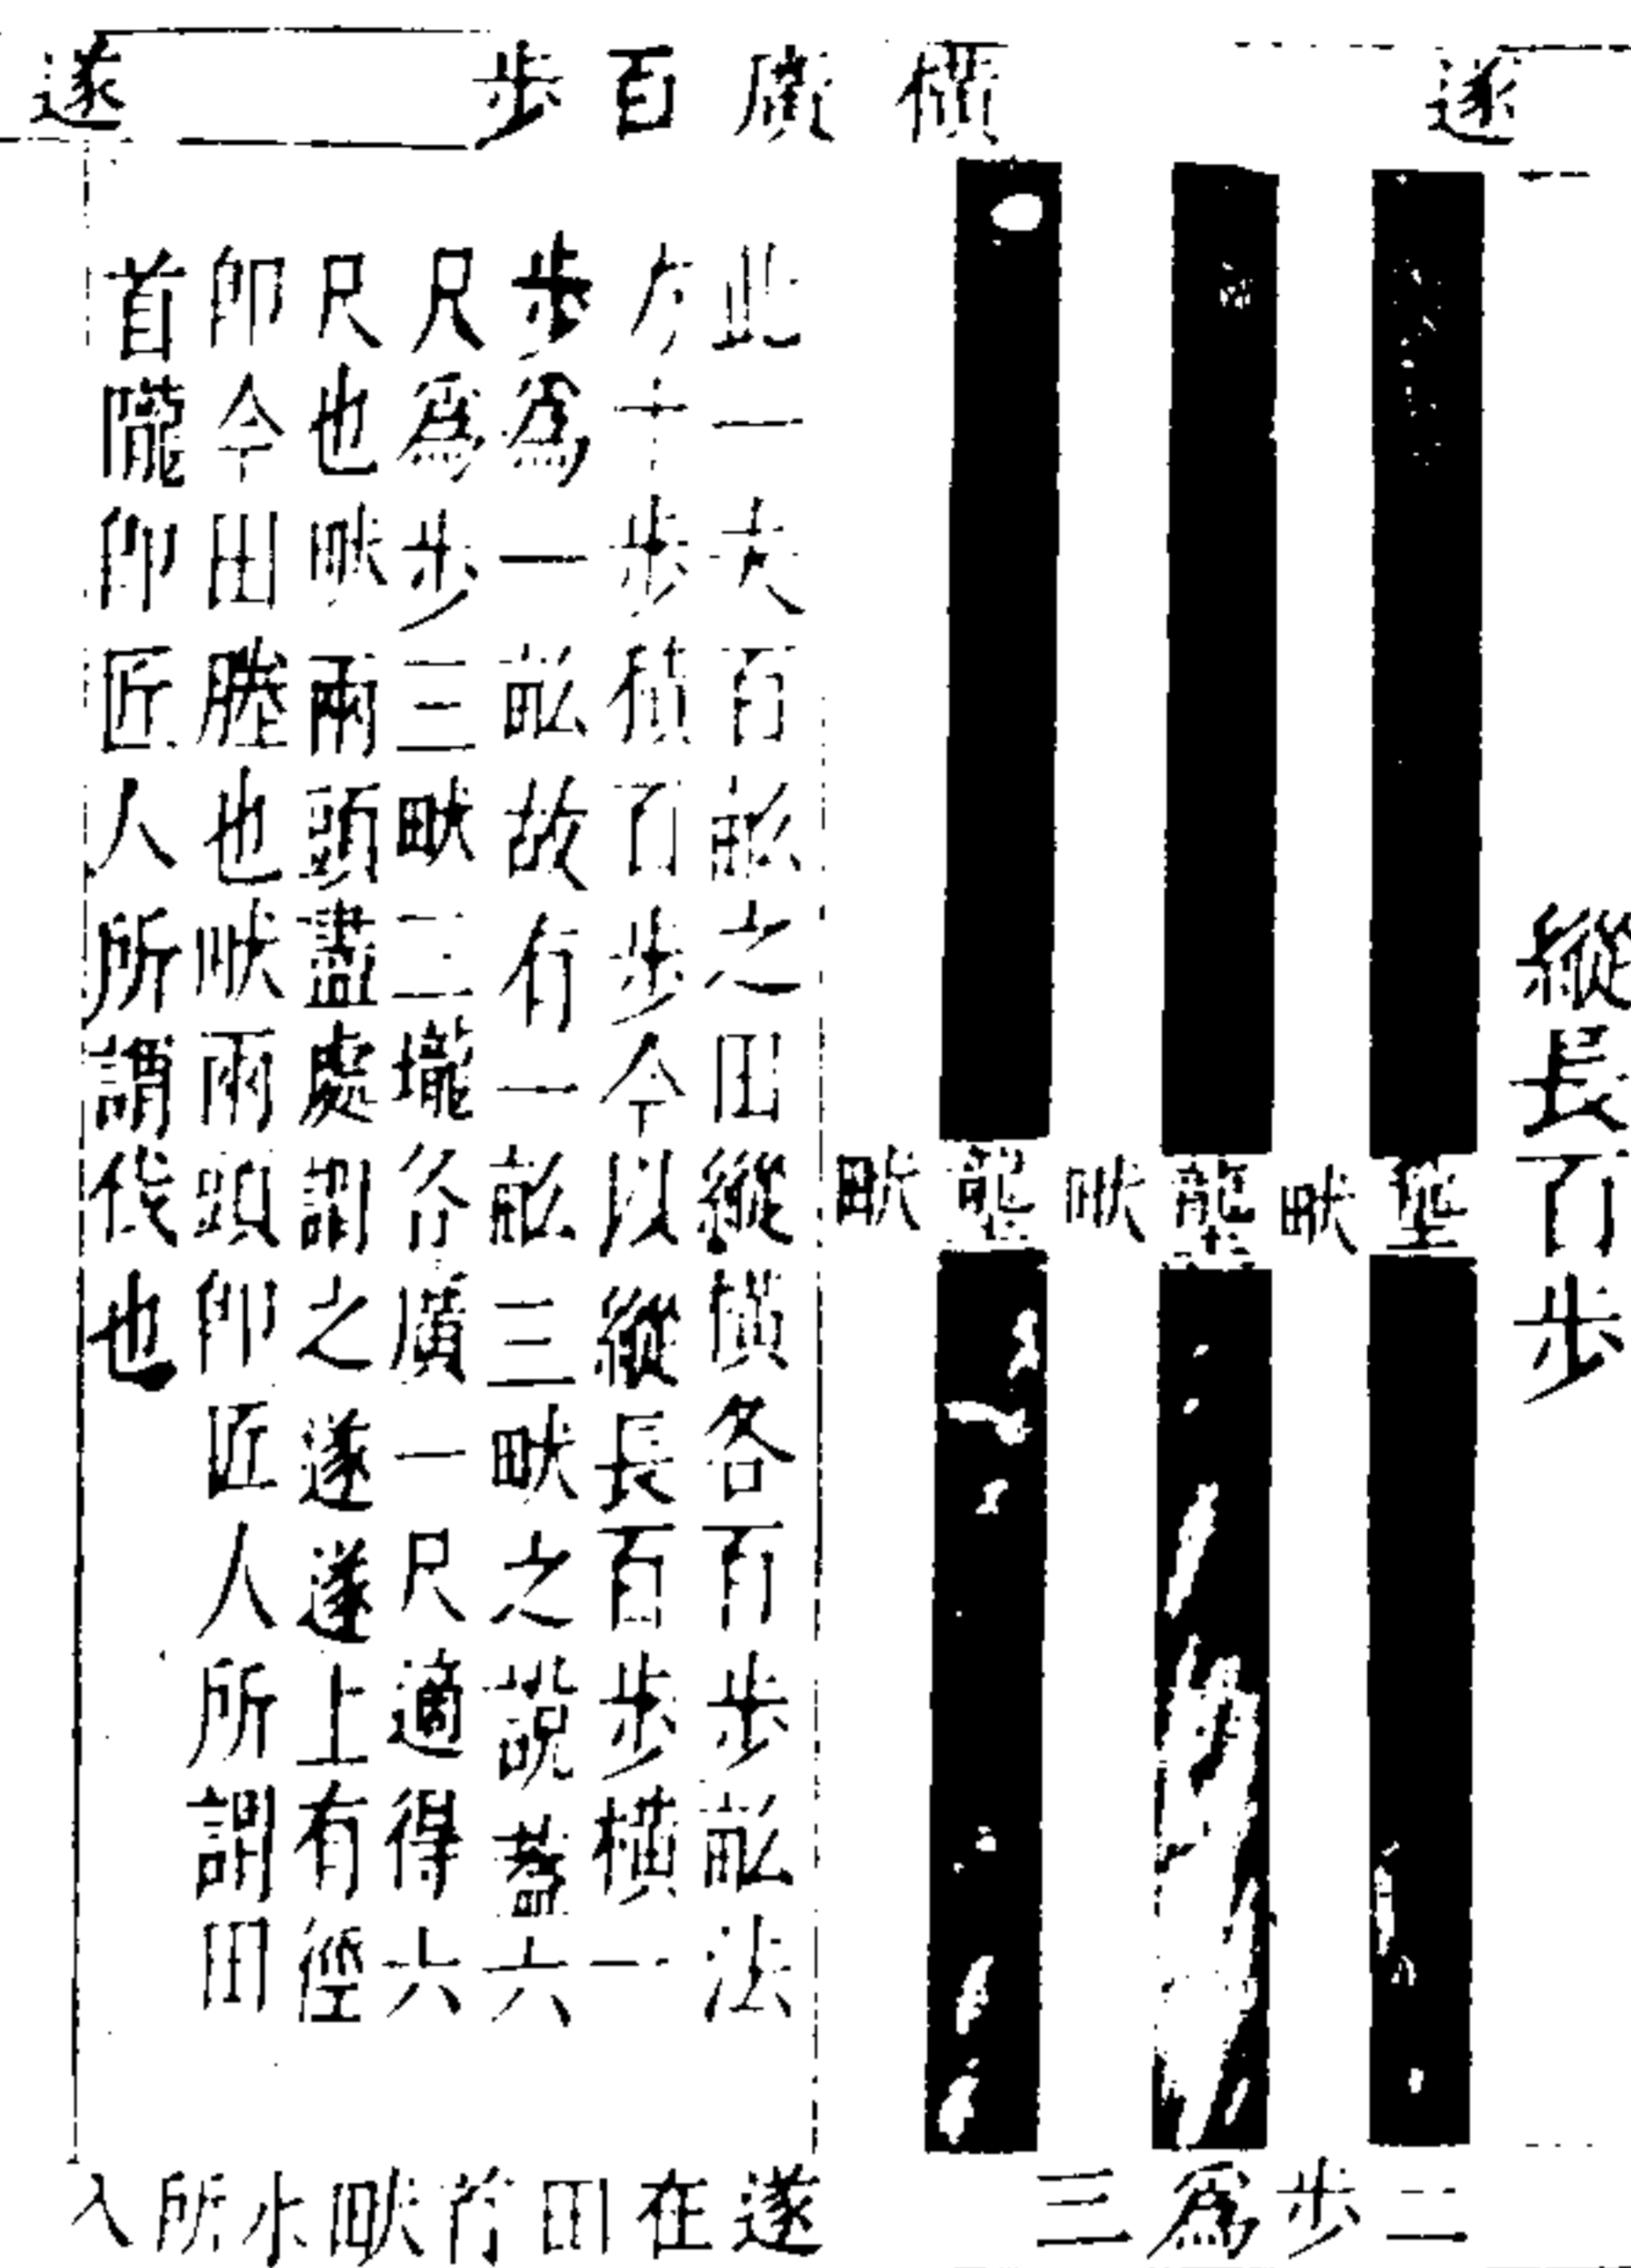 遂
橫廣百步
遂
縱長百步
壟畎壟畎壟畎
此一夫百畝之田縱橫各百步畝法
方十步積百步今以縱長百步橫一
步爲一畝故有一畝三畎之說葢六
尺爲步三畎三壠各廣一尺適得六
尺也畎兩頭盡處謂之遂遂上有徑
卽今田塍也畎兩頭卽匠人所謂田
首隴卽匠人所謂伐也
步爲三
遂在田首畎水所入